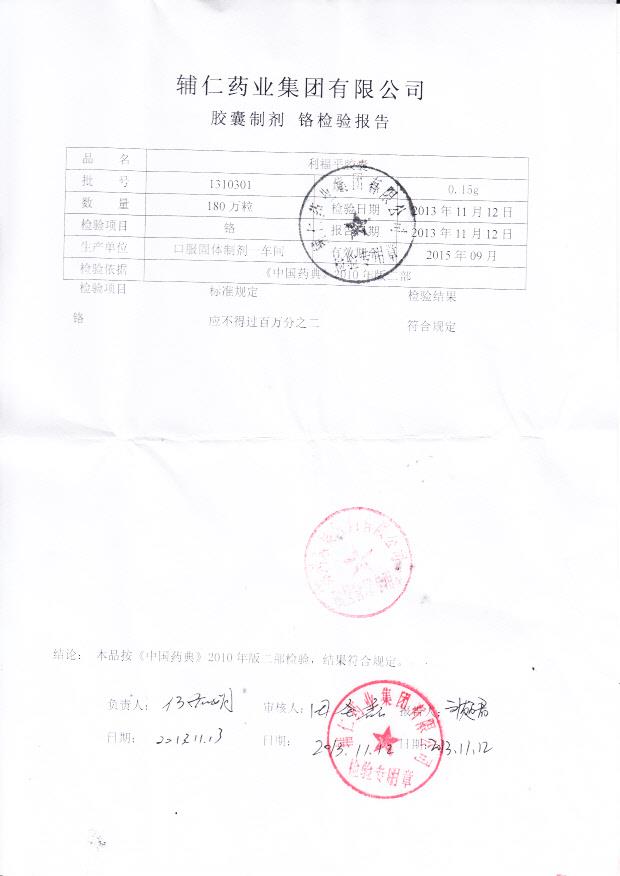 辅仁药业集团有限公司
胶囊制剂 铬检验报告
品 名 利福平胶囊
批 号 1310301 0.15g
数 量 180万粒 检验日期 2013年11月12日
检验项目 铬 报告日期 2013年11月12日
生产单位 口服固体制剂一车间 有效期至 2015年09月
检验依据 《中国药典》2010年版二部
检验项目 标准规定 检验结果
铬 应不得过百万分之二 符合规定
结论: 本品按《中国药典》2010年版二部检验,结果符合规定。
负责人: 审核人: 报告人:
日期: 2013.11.13 日期: 2013.11.12 日期: 2013.11.12
辅仁药业集团有限公司
检验专用章